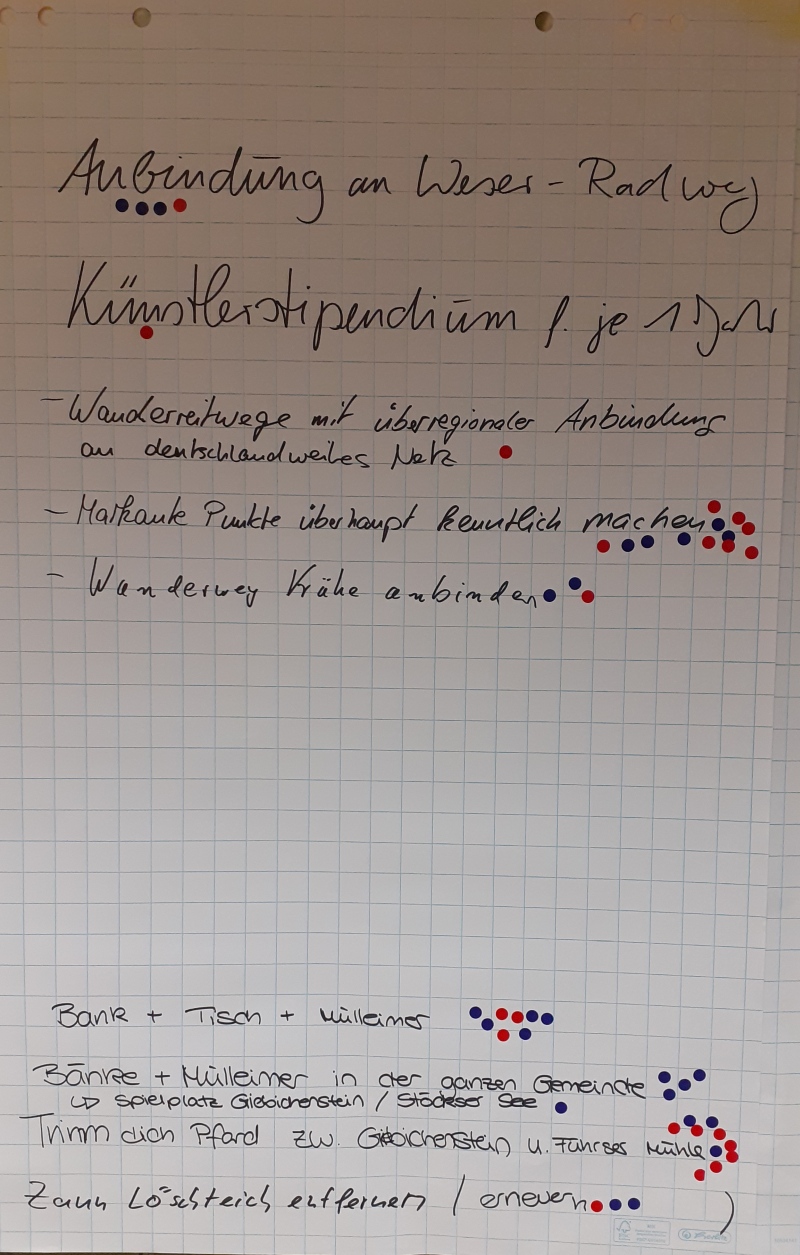 Anbindung an Weser-Radweg
Künstlerstipendium f. je 1 Jahr
- Wanderreitwege mit überregionaler Anbindung
an deutschlandweites Netz
- Markante Punkte überhaupt kenntlich machen
- Wanderweg Krähe anbinden
Bank + Tisch + Mülleimer
Bänke + Mülleimer in der ganzen Gemeinde
↳ Spielplatz Giebichenstein / Stöckser See
Trimm dich Pfard zw. Giebichenstein u. Führser Mühle
Zaun Löschteich entfernen / erneuern